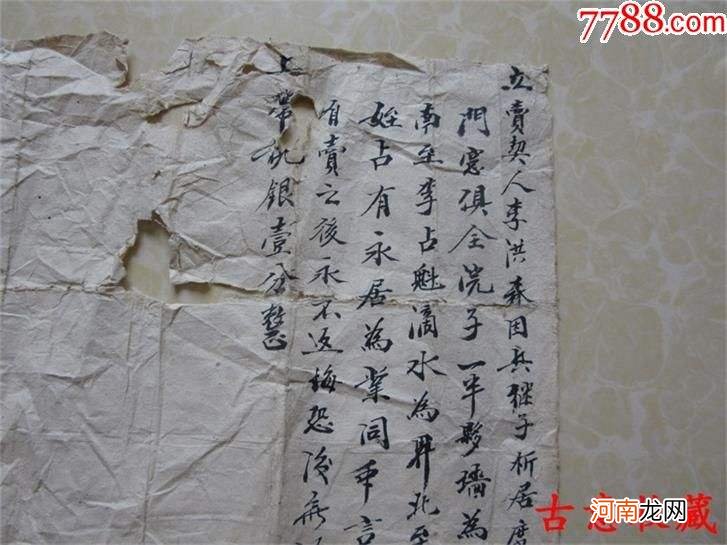 7788.com
立賣契人李洪森因與継子析居
門窓俱全院子一半夥墻為
南至李占魁滴水為界北至
姪占有永居為業同中言
自賣之後永不返悔恐後無
上帶糧銀壹分整
古意收藏
河南龙网